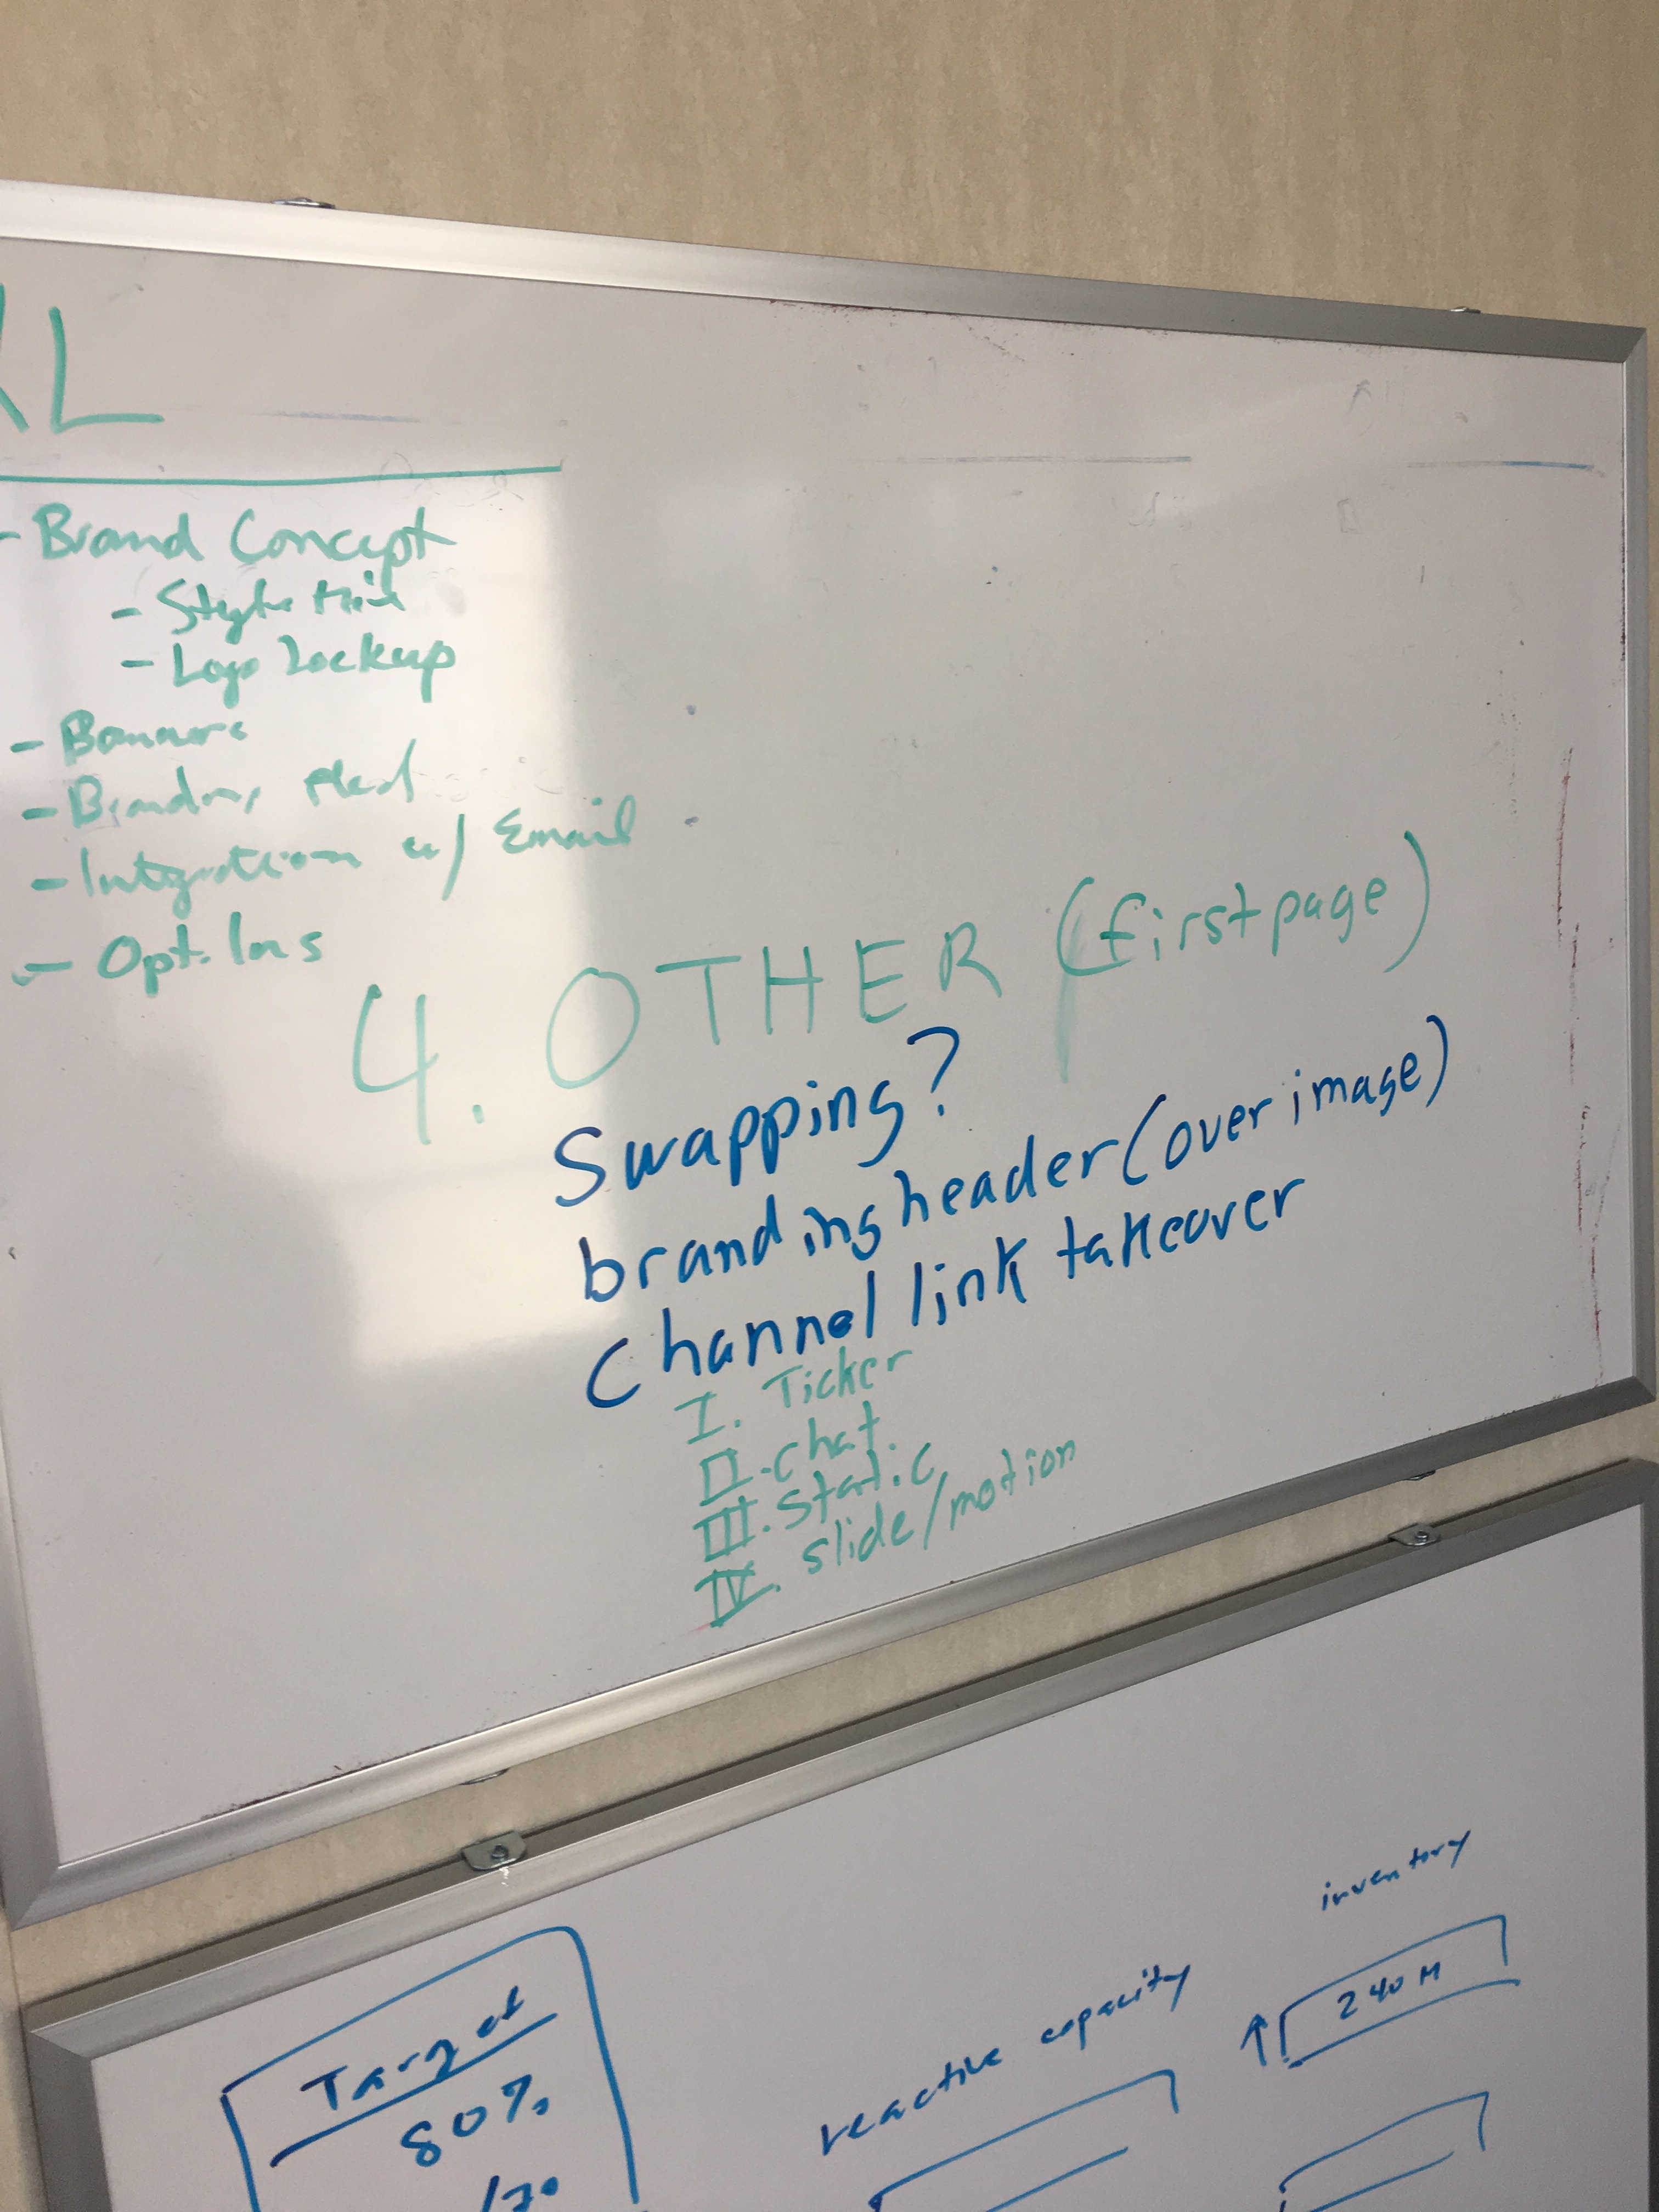 L
- Brand Concept
- Style
- Logo Lockup
- Banners
- Branding
- Integration w/ Email
- Opt-Ins
4. OTHER (first page)
Swapping?
branding header (over image)
Channel link takeover
I. Ticker
II. chat
III. Static
IV. slide/motion
inventory
240M
reactive capacity
Target
80%